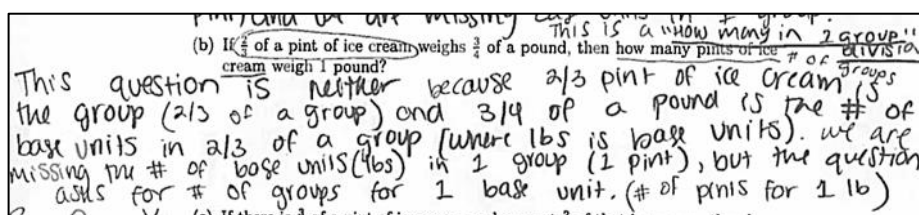 and we are missing
in 1 group.
This is a "How many in 1 group"
(b) If 2/3 of a pint of ice cream weighs 3/4 of a pound, then how many pints of ice # of division
cream weigh 1 pound? groups
This question is neither because 2/3 pint of ice cream is
the group (2/3 of a group) and 3/4 of a pound is the # of
base units in 2/3 of a group (where lbs is base units). we are
missing the # of base units (lbs) in 1 group (1 pint), but the question
asks for # of groups for 1 base unit. (# of pints for 1 lb)